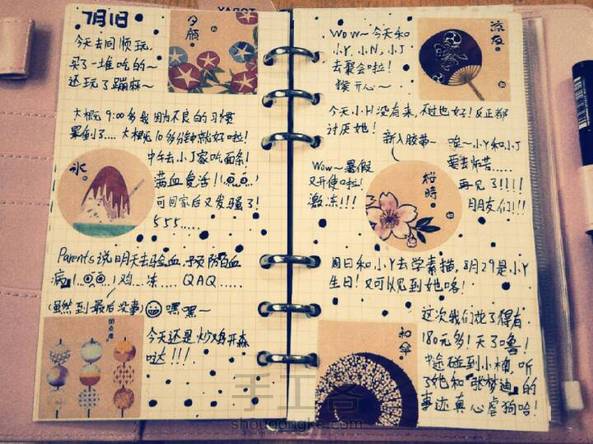 7月1日
夕顔
今天去同顺玩,
买了一堆吃的~
还玩了蹦麻~
大概9:00多我因为不良的习惯
累倒了.... 大概10多分钟就好啦!
中午去小J家吃面条!
满血复活!
可回家后又发骚了!
555.....
氷
Parents说明天去验血, 预防白血
病! 鸡...冻.... QAQ.....
(虽然到最后没事) 嘿嘿~
今天还是炒鸡开森
哒!!!
Wow~今天和
小Y,小N,小J
去聚会啦!
候开心~
今天小H没有来,不过也好!反正都
讨厌她!
新入胶带~
Wow~暑假
又开使啦!
激冻!!!
唉~小Y和小J
要去炸苦.....
再见了!!!!
月朋友们!!!
桜時
周日和小Y去学素描,8月29是小Y
生日!又可以见到她咯!
和傘
这次我们说了得有
180元多!天了噜!
中途碰到小楠,听
了她和张梦迪的
事迹真心虐狗哈!
手工客
shougongke.com